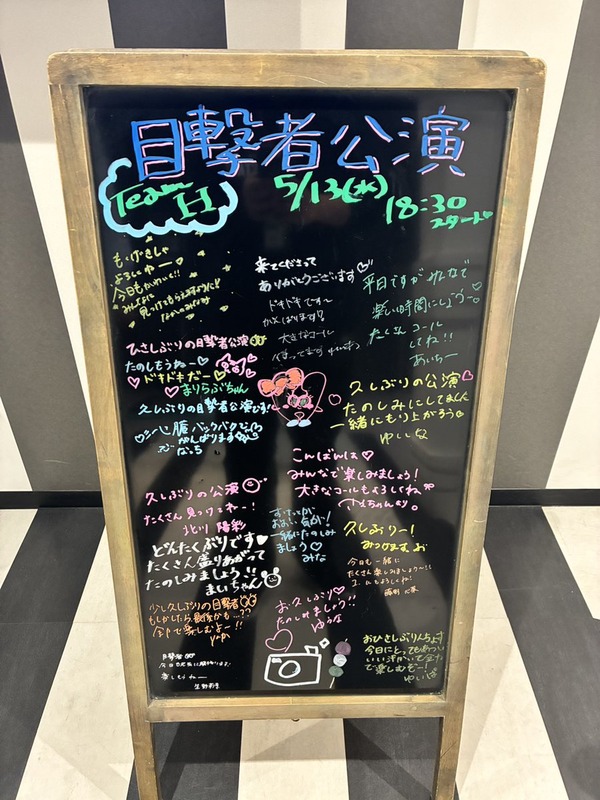 目撃者公演
Team H
5/13(水)
18:30
スタート
も・げきしゃ
よろしゅー♡
今日もかわいく!!
みんなに
見つけてもらえますように
来てくださって
ありがとうございます♡
ドキドキです〜
がんばります!
大きなコール
待ってます
平日ですがみんなで
楽しい時間にしよう〜♡
たくさんコール
してね!!
あいちー
ひさしぶりの目撃者公演
たのしもうねー♡
♡ドキドキだー♡
♡まりあぶちゃん
久しぶりの目撃者公演です!
心臓バックバク
がんばります
なっち
久しぶりの公演♡
たのしみにしてました
一緒にもり上がろう♡
ゆいな
こんばんは♡
みんなで楽しみましょう!
大きなコールもよろしくね
久しぶりの公演
たくさん見つけてねー!
北川 陽彩
一緒にたのしみ
ましょう♡
みな
久しぶりー!
どんたくぶりです♥
たくさん盛りあがって
たのしみましょう!!
まいちゃん
今日も一緒に
たくさん楽しみましょう〜!!
少し久しぶりの目撃者
もしかしたら最後かも…??
全力で楽しむよー!!
yapi
お久しぶり♡
たのしみましょう!!
ゆうな
おひさしぶりんちょ
今日にとってもあつい
いい汗かいて全力
で楽しむぞー!
目撃者
楽しもうねー